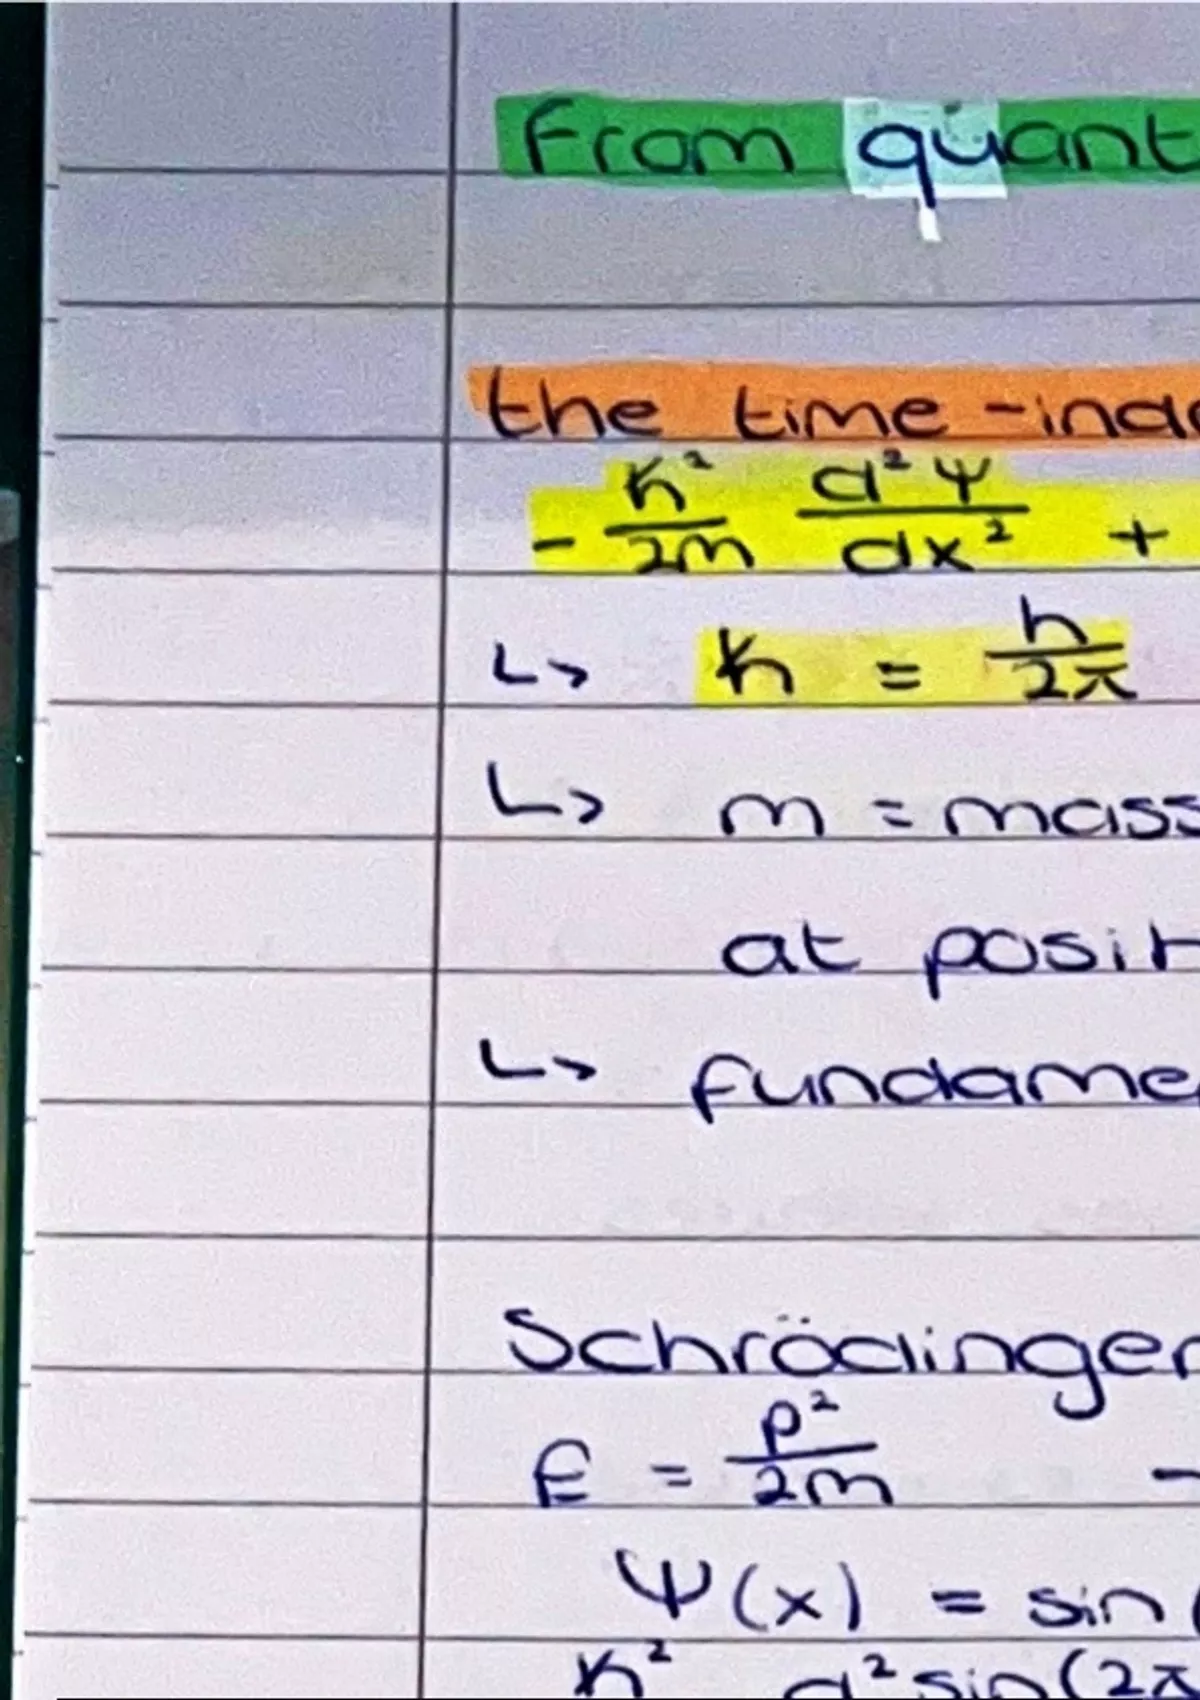 From quant
the time-inde
- ħ²/2m d²ψ/dx² +
↳ ħ = h/2π
↳ m = mass
at posit
↳ fundame
Schrödinger
E = p²/2m -
ψ(x) = sin(
ħ² d² sin(2π